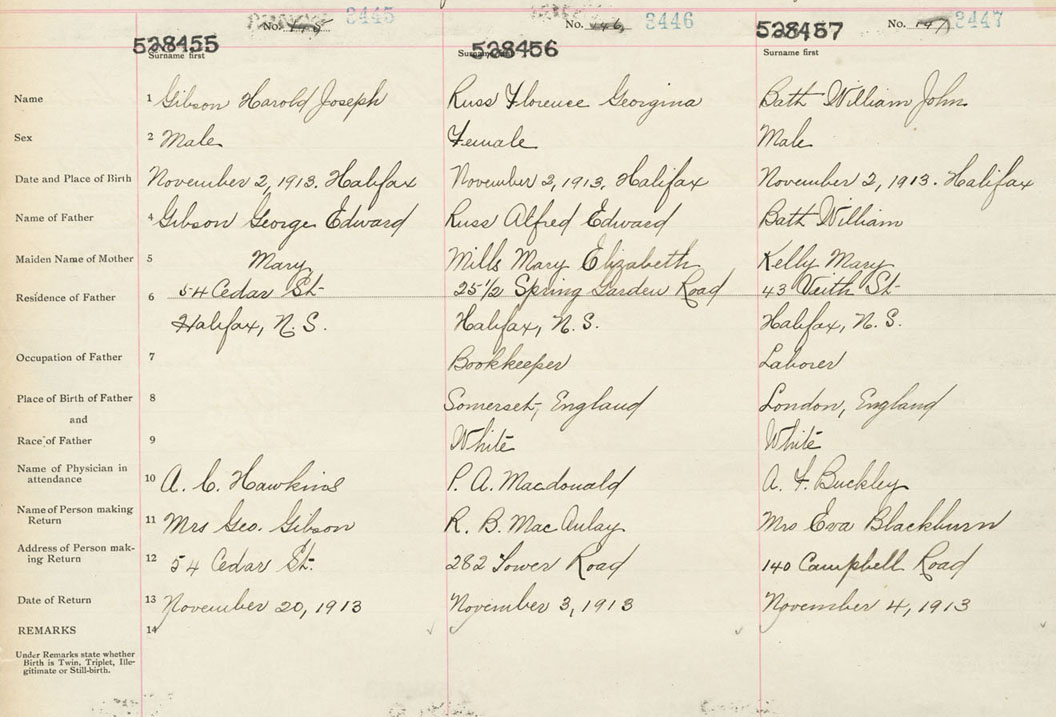 No. 3445 No. 446 3446 No. 447 3447
528455 528456 528457
Surname first Surname first Surname first
Name 1 Gibson Harold Joseph Russ Florence Georgina Bath William John
Sex 2 Male Female Male
Date and Place of Birth November 2, 1913. Halifax November 2, 1913. Halifax November 2, 1913. Halifax
Name of Father 4 Gibson George Edward Russ Alfred Edward Bath William
Maiden Name of Mother 5 Mary Mills Mary Elizabeth Kelly Mary
Residence of Father 6 54 Cedar St- 25 1/2 Spring Garden Road 43 Veith St-
Halifax, N.S. Halifax, N.S. Halifax, N.S.
Occupation of Father 7 Bookkeeper Laborer
Place of Birth of Father 8 Somerset, England London, England
and
Race of Father 9 White White
Name of Physician in
attendance 10 A. C. Hawkins P. A. Macdonald A. F. Buckley
Name of Person making
Return 11 Mrs Geo. Gibson R. B. Mac Aulay Mrs Eva Blackburn
Address of Person mak-
ing Return 12 54 Cedar St. 282 Tower Road 140 Campbell Road
Date of Return 13 November 20, 1913 November 3, 1913 November 4, 1913
REMARKS 14
Under Remarks state whether
Birth is Twin, Triplet, Ille-
gitimate or Still-birth.